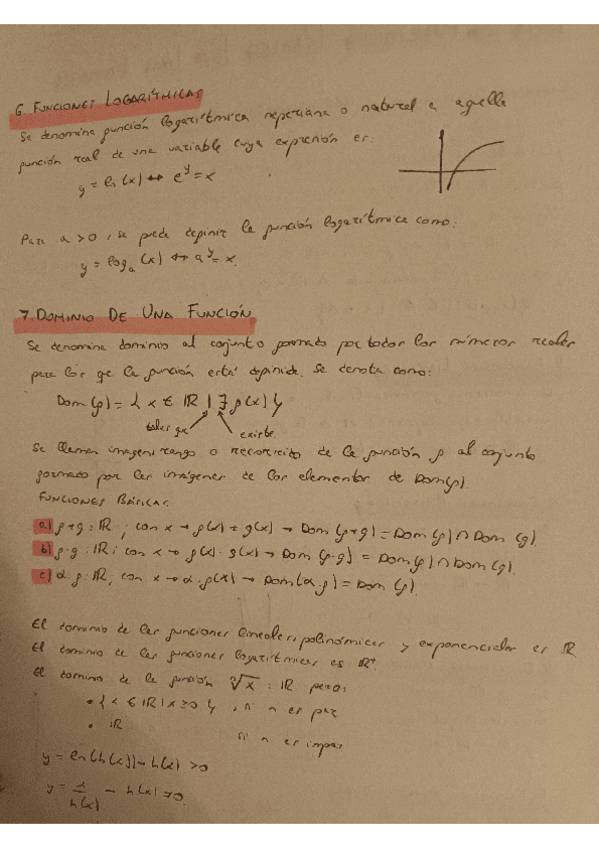 6. FUNCIONES LOGARÍTMICAS
Se denomina función logarítmica neperiana o natural a aquella
función real de una variable cuya expresión es:
y = ln(x) ↔ e^y = x
Para a > 0, se puede definir la función logarítmica como:
y = log_a (x) ↔ a^y = x.
7. DOMINIO DE UNA FUNCIÓN
Se denomina dominio al conjunto formado por todos los números reales
para los qe la función está definida. Se denota como:
Dom(f) = { x ∈ ℝ | ∃ f(x) }
tales que existe.
Se llaman imagen, rango o recorrido de la función f al conjunto
formado por las imágenes de los elementos de Dom(f).
FUNCIONES BÁSICAS.
a) f+g : ℝ ; con x → f(x) + g(x) → Dom (f+g) = Dom (f) ∩ Dom (g).
b) f·g : ℝ ; con x → f(x) · g(x) → Dom (f·g) = Dom (f) ∩ Dom (g).
c) α·f : ℝ, con x → α·f(x) → Dom(α·f) = Dom (f).
El dominio de las funciones lineales, polinómicas y exponenciales es ℝ
El dominio de las funciones logarítmicas es ℝ⁺.
El dominio de la función ⁿ√x : ℝ para:
• { x ∈ ℝ | x ≥ 0 } , si n es par
• ℝ si n es impar
y = ln(h(x)) → h(x) > 0